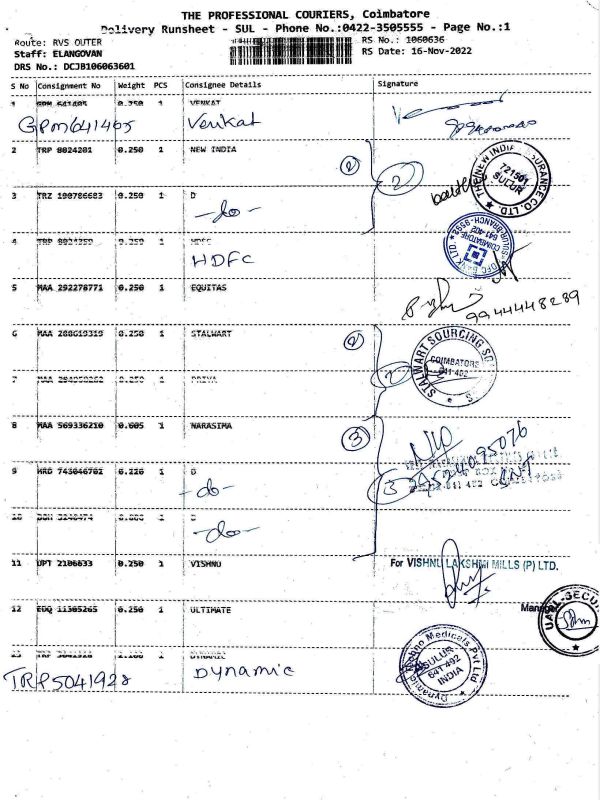 THE PROFESSIONAL COURIERS, Coimbatore
Delivery Runsheet - SUL - Phone No.:0422-3505555 - Page No.:1
Route: RVS OUTER
RS No.: 1060636
Staff: ELANGOVAN
RS Date: 16-Nov-2022
DRS No.: DCJB106063601
S No Consignment No Weight PCS Consignee Details Signature
1 GPM 641405 0.250 1 VENKAT
GPM641405 Venkat
2 TRP 8024201 0.250 1 NEW INDIA
THE NEW INDIA ASSURANCE CO. LTD.
721501
SULUR
2
3 TRZ 190786683 0.250 1 D
-do-
4 TRP 0.250 1 HDFC
HDFC
HDFC BANK LTD.
COIMBATORE
641-402
5 MAA 292278771 0.250 1 EQUITAS
9944448289
6 MAA 288619319 0.250 1 STALWART
STALWART SOURCING
COIMBATORE
641 402
7 MAA 0.250 1 PRIYA
8 MAA 569336210 0.605 1 NARASIMA
3
9524095076
9 743046702 0.220 1 D
-do-
3
641 402
10 1 D
-do-
11 UPT 2106633 0.250 1 VISHNU
For VISHNU LAKSHMI MILLS (P) LTD.
Manager
12 EDQ 11305265 0.250 1 ULTIMATE
13 TRP 5041928 1 DYNAMIC
TRP5041928 Dynamic
Dynamic Techno Medicals Pvt Ltd
SULUR
641 402
INDIA